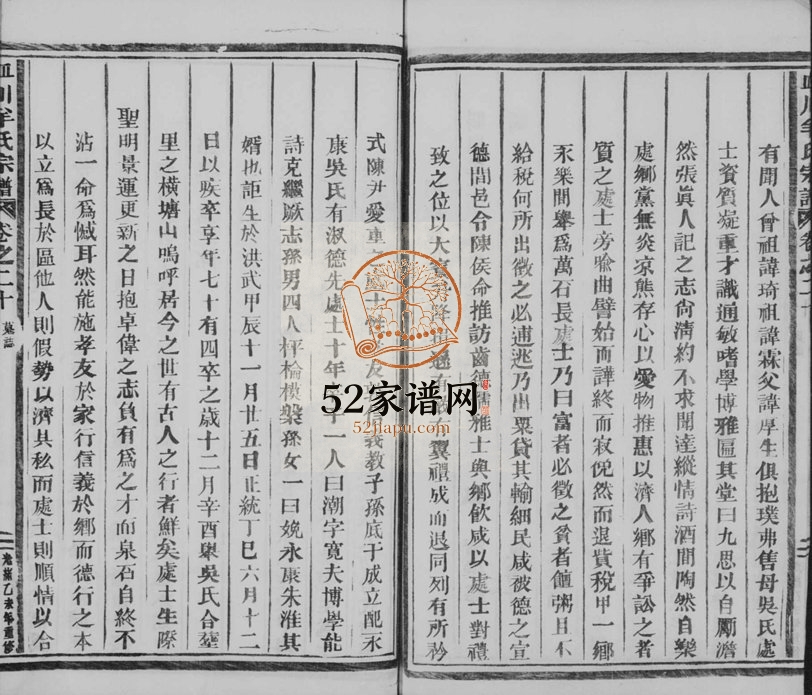 有聞人曾祖諱琦祖諱霖父諱厚生俱抱璞弗售母吳氏處
士資質凝重才識通敏嗜學博雅匾其堂曰九思以自勵澹
然張眞人記之志尙淸約不求聞達縱情詩酒間陶然自樂
處鄉黨無炎凉態存心以愛物推惠以濟人鄉有爭訟之者
質之處士旁喻曲譬始而譁終而寂俛然而退貲稅甲一鄉
永樂間舉爲萬石長處士乃曰富者必徵之貧者饘粥且不
給稅何所出徵之必逋逃乃出粟貸其輸細民咸被德之宣
德間邑令陳侯命推訪齒德儒雅士與鄉飮咸以處士對禮
致之位以大賓 有 翼禮成而退同列有所矜
式陳尹愛重 友 信義教子孫底于成立配永
康吳氏有淑德先處士十年 一人曰潮字寬夫博學能
詩克繼厥志孫男四人枰棆模槃孫女一曰娩永康朱淮其
婿也詎生於洪武甲辰十一月廿五日正統丁巳六月十二
日以疾卒享年七十有四卒之歲十二月辛酉舉吳氏合塟
里之橫塘山嗚呼居今之世有古人之行者鮮矣處士生際
聖明景運更新之日抱卓偉之志負有爲之才而泉石自終不
沾一命爲憾耳然能施孝友於家行信義於鄉而德行之本
以立爲長於區他人則假勢以濟其私而處士則順情以合
川牟氏宗譜 卷之二十 墓誌 二 光緖乙未年重修
52家谱网
52jiapu.com